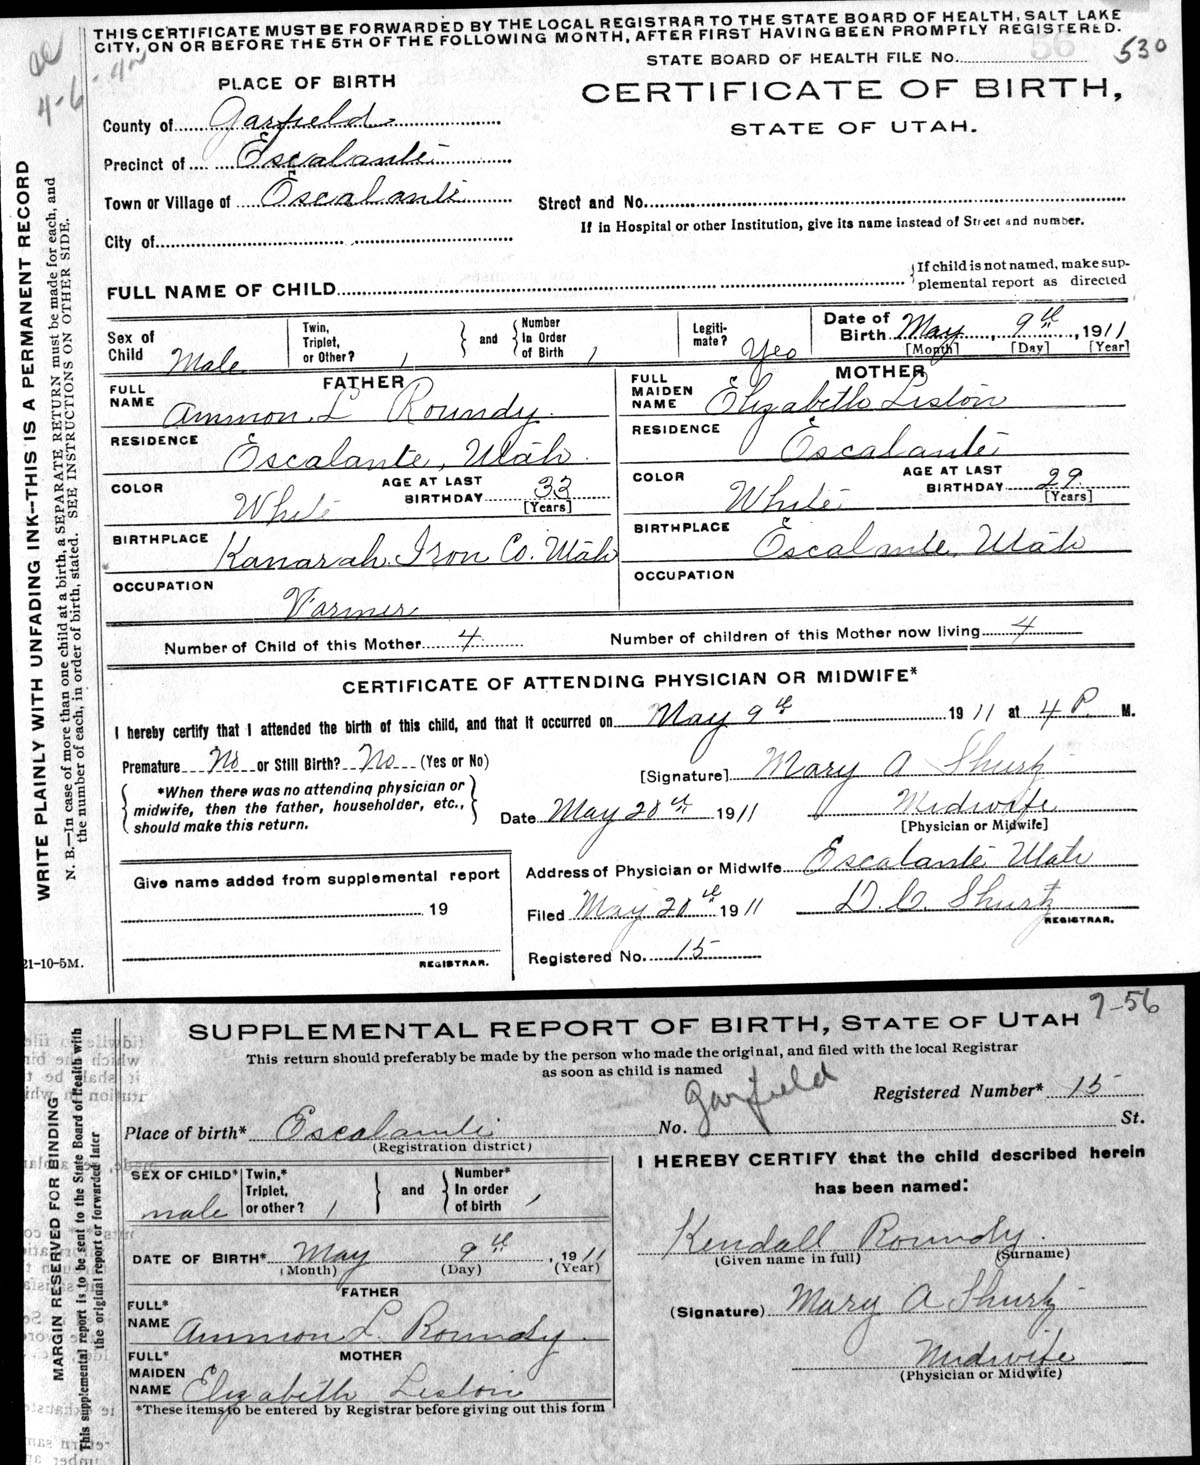 THIS CERTIFICATE MUST BE FORWARDED BY THE LOCAL REGISTRAR TO THE STATE BOARD OF HEALTH, SALT LAKE
CITY, ON OR BEFORE THE 5TH OF THE FOLLOWING MONTH, AFTER FIRST HAVING BEEN PROMPTLY REGISTERED.
STATE BOARD OF HEALTH FILE No. 56 530
PLACE OF BIRTH
CERTIFICATE OF BIRTH,
STATE OF UTAH.
County of Garfield
Precinct of Escalante
Town or Village of Escalante
Street and No.
If in Hospital or other Institution, give its name instead of Street and number.
City of
FULL NAME OF CHILD
If child is not named, make sup-
plemental report as directed
Sex of Child Male
Twin, Triplet, or Other? 1 and Number In Order of Birth 1
Legiti-mate? Yes
Date of Birth May 9th, 1911
[Month] [Day] [Year]
FATHER
FULL NAME Ammon L Roundy.
RESIDENCE Escalante, Utah.
COLOR White AGE AT LAST BIRTHDAY 33 [Years]
BIRTHPLACE Kanarah Iron Co. Utah
OCCUPATION Farmer
MOTHER
FULL MAIDEN NAME Elizabeth Liston
RESIDENCE Escalante
COLOR White AGE AT LAST BIRTHDAY 29 [Years]
BIRTHPLACE Escalante, Utah
OCCUPATION
Number of Child of this Mother 4 Number of children of this Mother now living 4
CERTIFICATE OF ATTENDING PHYSICIAN OR MIDWIFE*
I hereby certify that I attended the birth of this child, and that it occurred on May 9th 1911 at 4 P. M.
Premature No or Still Birth? No (Yes or No)
[Signature] Mary A Shurtz
*When there was no attending physician or
midwife, then the father, householder, etc.,
should make this return.
Date May 20th 1911 Midwife
[Physician or Midwife]
Give name added from supplemental report
19
REGISTRAR.
Address of Physician or Midwife Escalante Utah
Filed May 20th 1911 D. C. Shurtz
REGISTRAR.
Registered No. 15
WRITE PLAINLY WITH UNFADING INK--THIS IS A PERMANENT RECORD
N. B.—In case of more than one child at a birth, a SEPARATE RETURN must be made for each, and
the number of each, in order of birth, stated. SEE INSTRUCTIONS ON OTHER SIDE.
21-10-5M.
7-56
SUPPLEMENTAL REPORT OF BIRTH, STATE OF UTAH
This return should preferably be made by the person who made the original, and filed with the local Registrar
as soon as child is named
Garfield
Registered Number* 15
Place of birth* Escalante No. St.
(Registration district)
SEX OF CHILD* male
Twin,* Triplet, or other? 1 and Number* In order of birth 1
DATE OF BIRTH* May 9th, 1911
(Month) (Day) (Year)
FATHER
FULL* NAME Ammon L. Roundy
MOTHER
FULL* MAIDEN NAME Elizabeth Liston
*These items to be entered by Registrar before giving out this form
I HEREBY CERTIFY that the child described herein
has been named:
Kendall Roundy.
(Given name in full) (Surname)
(Signature) Mary A Shurtz
Midwife
(Physician or Midwife)
MARGIN RESERVED FOR BINDING
This supplemental report is to be sent to the State Board of Health with
the original report or forwarded later